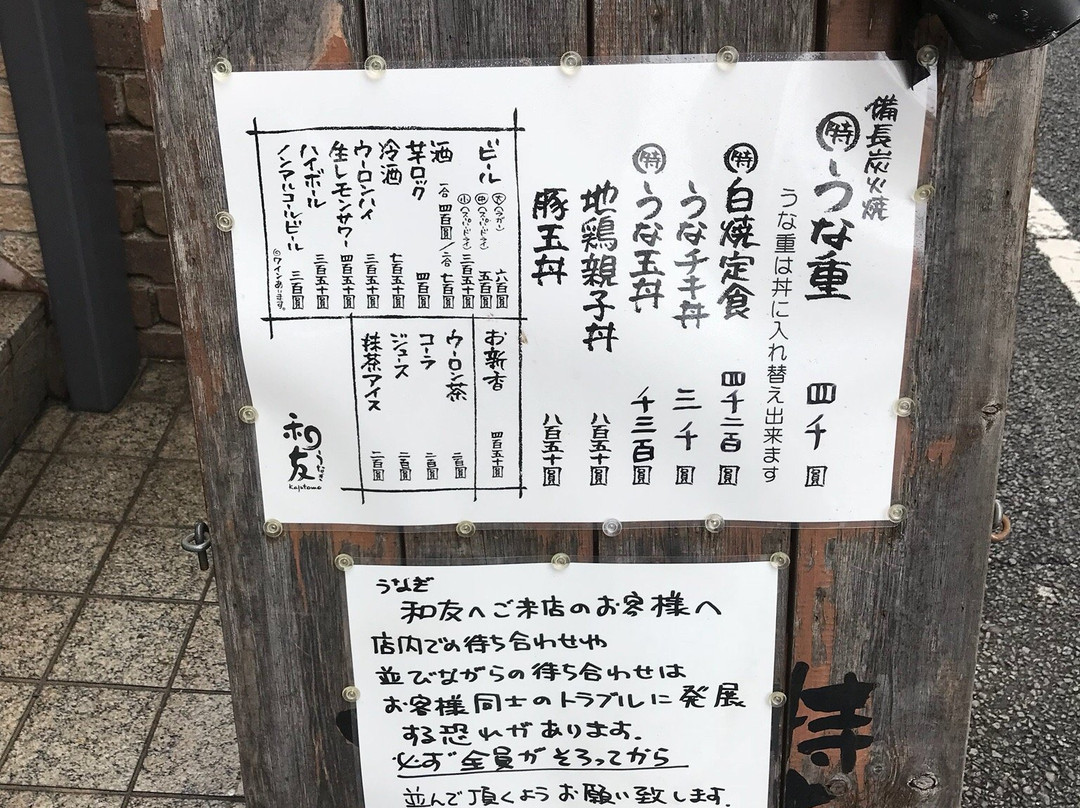 備長炭火焼
特 うな重 四千圓
うな重は丼に入れ替え出来ます
特 白焼定食 四千二百圓
うなチキ丼 三千圓
特 うな玉丼 千三百圓
地鶏親子丼 八百五十圓
豚玉丼 八百五十圓
ビール 大(ラガー) 六百圓
中(スーパードライ) 五百圓
小(スーパードライ) 三百五十圓
酒 一合 四百圓/二合 七百圓
芋ロック 四百圓
冷酒 七百五十圓
ウーロンハイ 三百五十圓
生レモンサワー 四百五十圓
ハイボール 三百五十圓
ノンアルコールビール 三百圓
◎ワインあります。
お新香 四百五十圓
ウーロン茶 二百圓
コーラ 二百圓
ジュース 二百圓
抹茶アイス 二百圓
うなぎ
和友
Kajutomo
うなぎ
和友へご来店のお客様へ
店内での待ち合わせや
並びながらの待ち合わせは
お客様同士のトラブルに発展
する恐れがあります.
必ず全員がそろってから
並んで頂くようお願い致します.
待